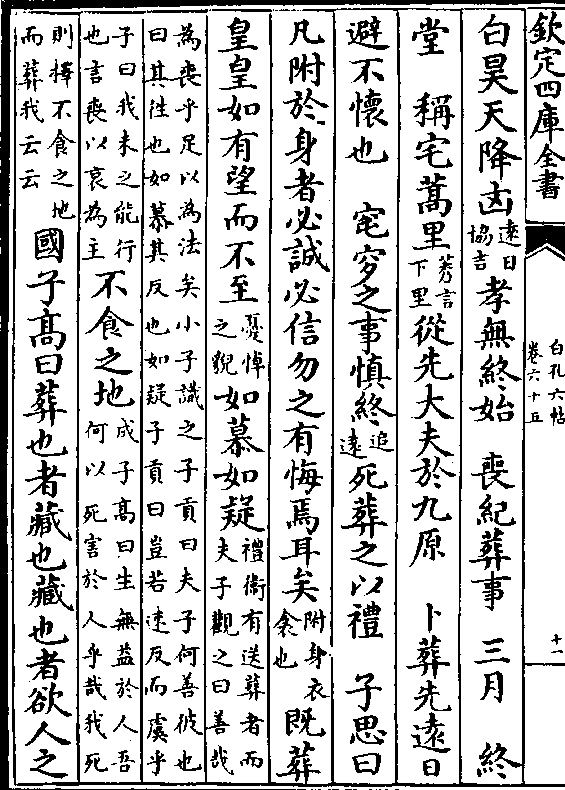 欽定四庫全書
白孔六帖
卷六十五
十一
白昊天降凶遠日協吉孝無終始　喪紀葬事　三月　終
堂　稱宅蒿里蒿言下里從先大夫於九原　卜葬先遠日
避不懷也　窀穸之事慎終追遠死葬之以禮　子思曰
凡附於身者必誠必信勿之有悔焉耳矣附身衣衾也既葬
皇皇如有望而不至憂悼之貌如慕如疑禮衞有送葬者而夫子觀之曰善哉
為喪乎足以為法矣小子識之子貢曰夫子何善彼也曰其往也如慕其反也如疑子貢曰豈若速反而虞乎
子曰我未之能行也言喪以哀為主不食之地成子高曰生無益於人吾何以死害於人乎哉我死
則擇不食之地而葬我云云國子高曰葬也者藏也藏也者欲人之